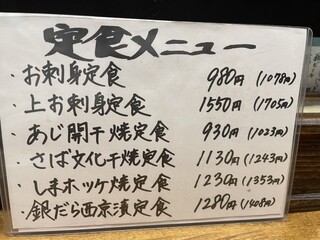 定食メニュー
・お刺身定食 980円(1078円)
・上お刺身定食 1550円(1705円)
・あじ開干焼定食 930円(1023円)
・さば文化干焼定食 1130円(1243円)
・しまホッケ焼定食 1230円(1353円)
・銀だら西京漬定食 1280円(1408円)